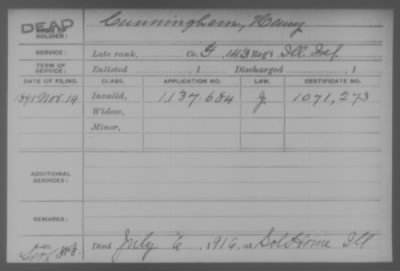 DEAD
SOLDIER: Cunningham, Henry
SERVICE: Late rank, Co. G, 143 Reg't Ill. Inf.
TERM OF SERVICE: Enlisted , 1 Discharged , 1
DATE OF FILING. CLASS. APPLICATION NO. LAW. CERTIFICATE NO.
1891 Nov. 14. Invalid, 1137.684 J. 1071,273
Widow,
Minor,
ADDITIONAL SERVICES:
REMARKS:
Died July 6, 1916, at Sol Home Ill